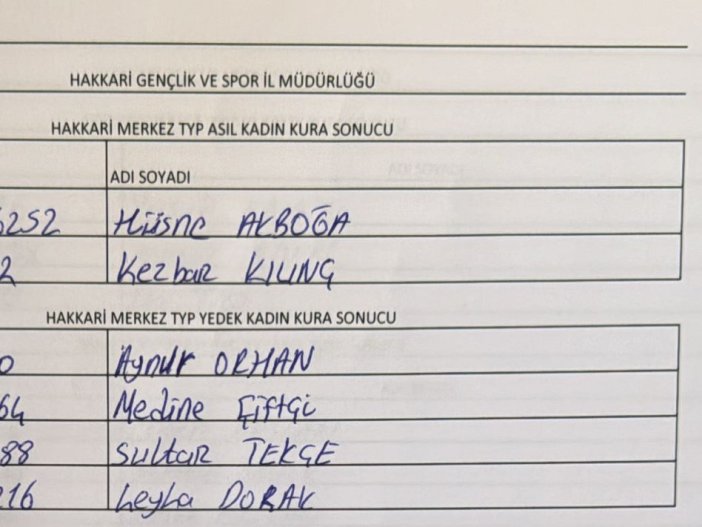 HAKKARİ GENÇLİK VE SPOR İL MÜDÜRLÜĞÜ
HAKKARİ MERKEZ TYP ASIL KADIN KURA SONUCU
ADI SOYADI
5252 Hüsne AKBOĞA
2 Kezbar KILINÇ
HAKKARİ MERKEZ TYP YEDEK KADIN KURA SONUCU
0 Aynur ORHAN
64 Medine Çiftçi
88 Sultar TEKÇE
216 Leyla DORAK